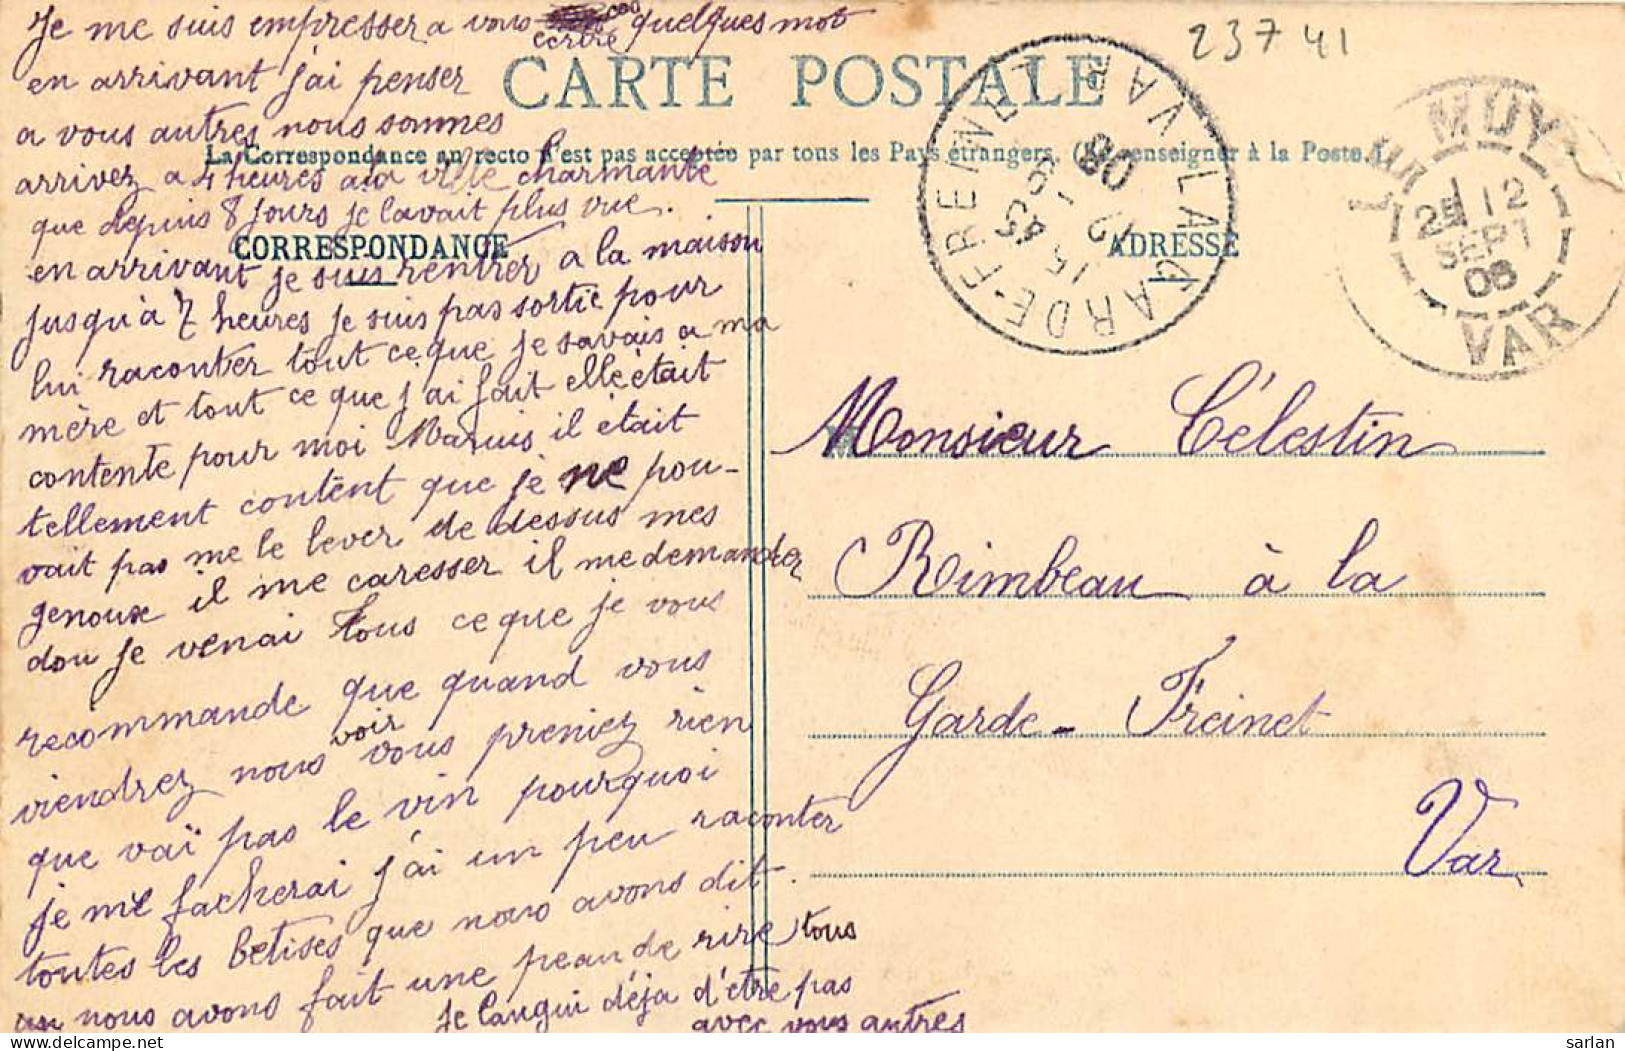 Je me suis empresser a vous ecrire quelques mot
en arrivant j'ai penser
a vous autres nous sommes
arrivez a 4 heures a la ville charmante
que depuis 8 jours je l'avait plus vue.
en arrivant je suis rentrer a la maison
jusqu'à 7 heures je suis pas sortie pour
lui raconter tout ce que je savais a ma
mère et tout ce que j'ai fait elle était
contente pour moi Marius il était
tellement content que je ne pou-
vait pas me le lever de dessus mes
genoux il me caresser il me demander
dou je venai tous ce que je vous
recommande que quand vous
viendrez nous voir vous preniez rien
que vaï pas le vin pourquoi
je me facherai j'ai un peu raconter
toutes les betises que nous avons dit.
nous avons fait une peau de rire tous
je langui déja d'être pas
avec vous autres
CARTE POSTALE
La Correspondance au recto n'est pas acceptée par tous les Pays étrangers. (Se renseigner à la Poste.)
CORRESPONDANCE
ADRESSE
23741
LA GARDE-FREINET VAR
15 45
12 - 9
08
LE MUY
12
SEPT
08
VAR
Monsieur Célestin
Rimbeau à la
Garde-Freinet
Var
sarlan